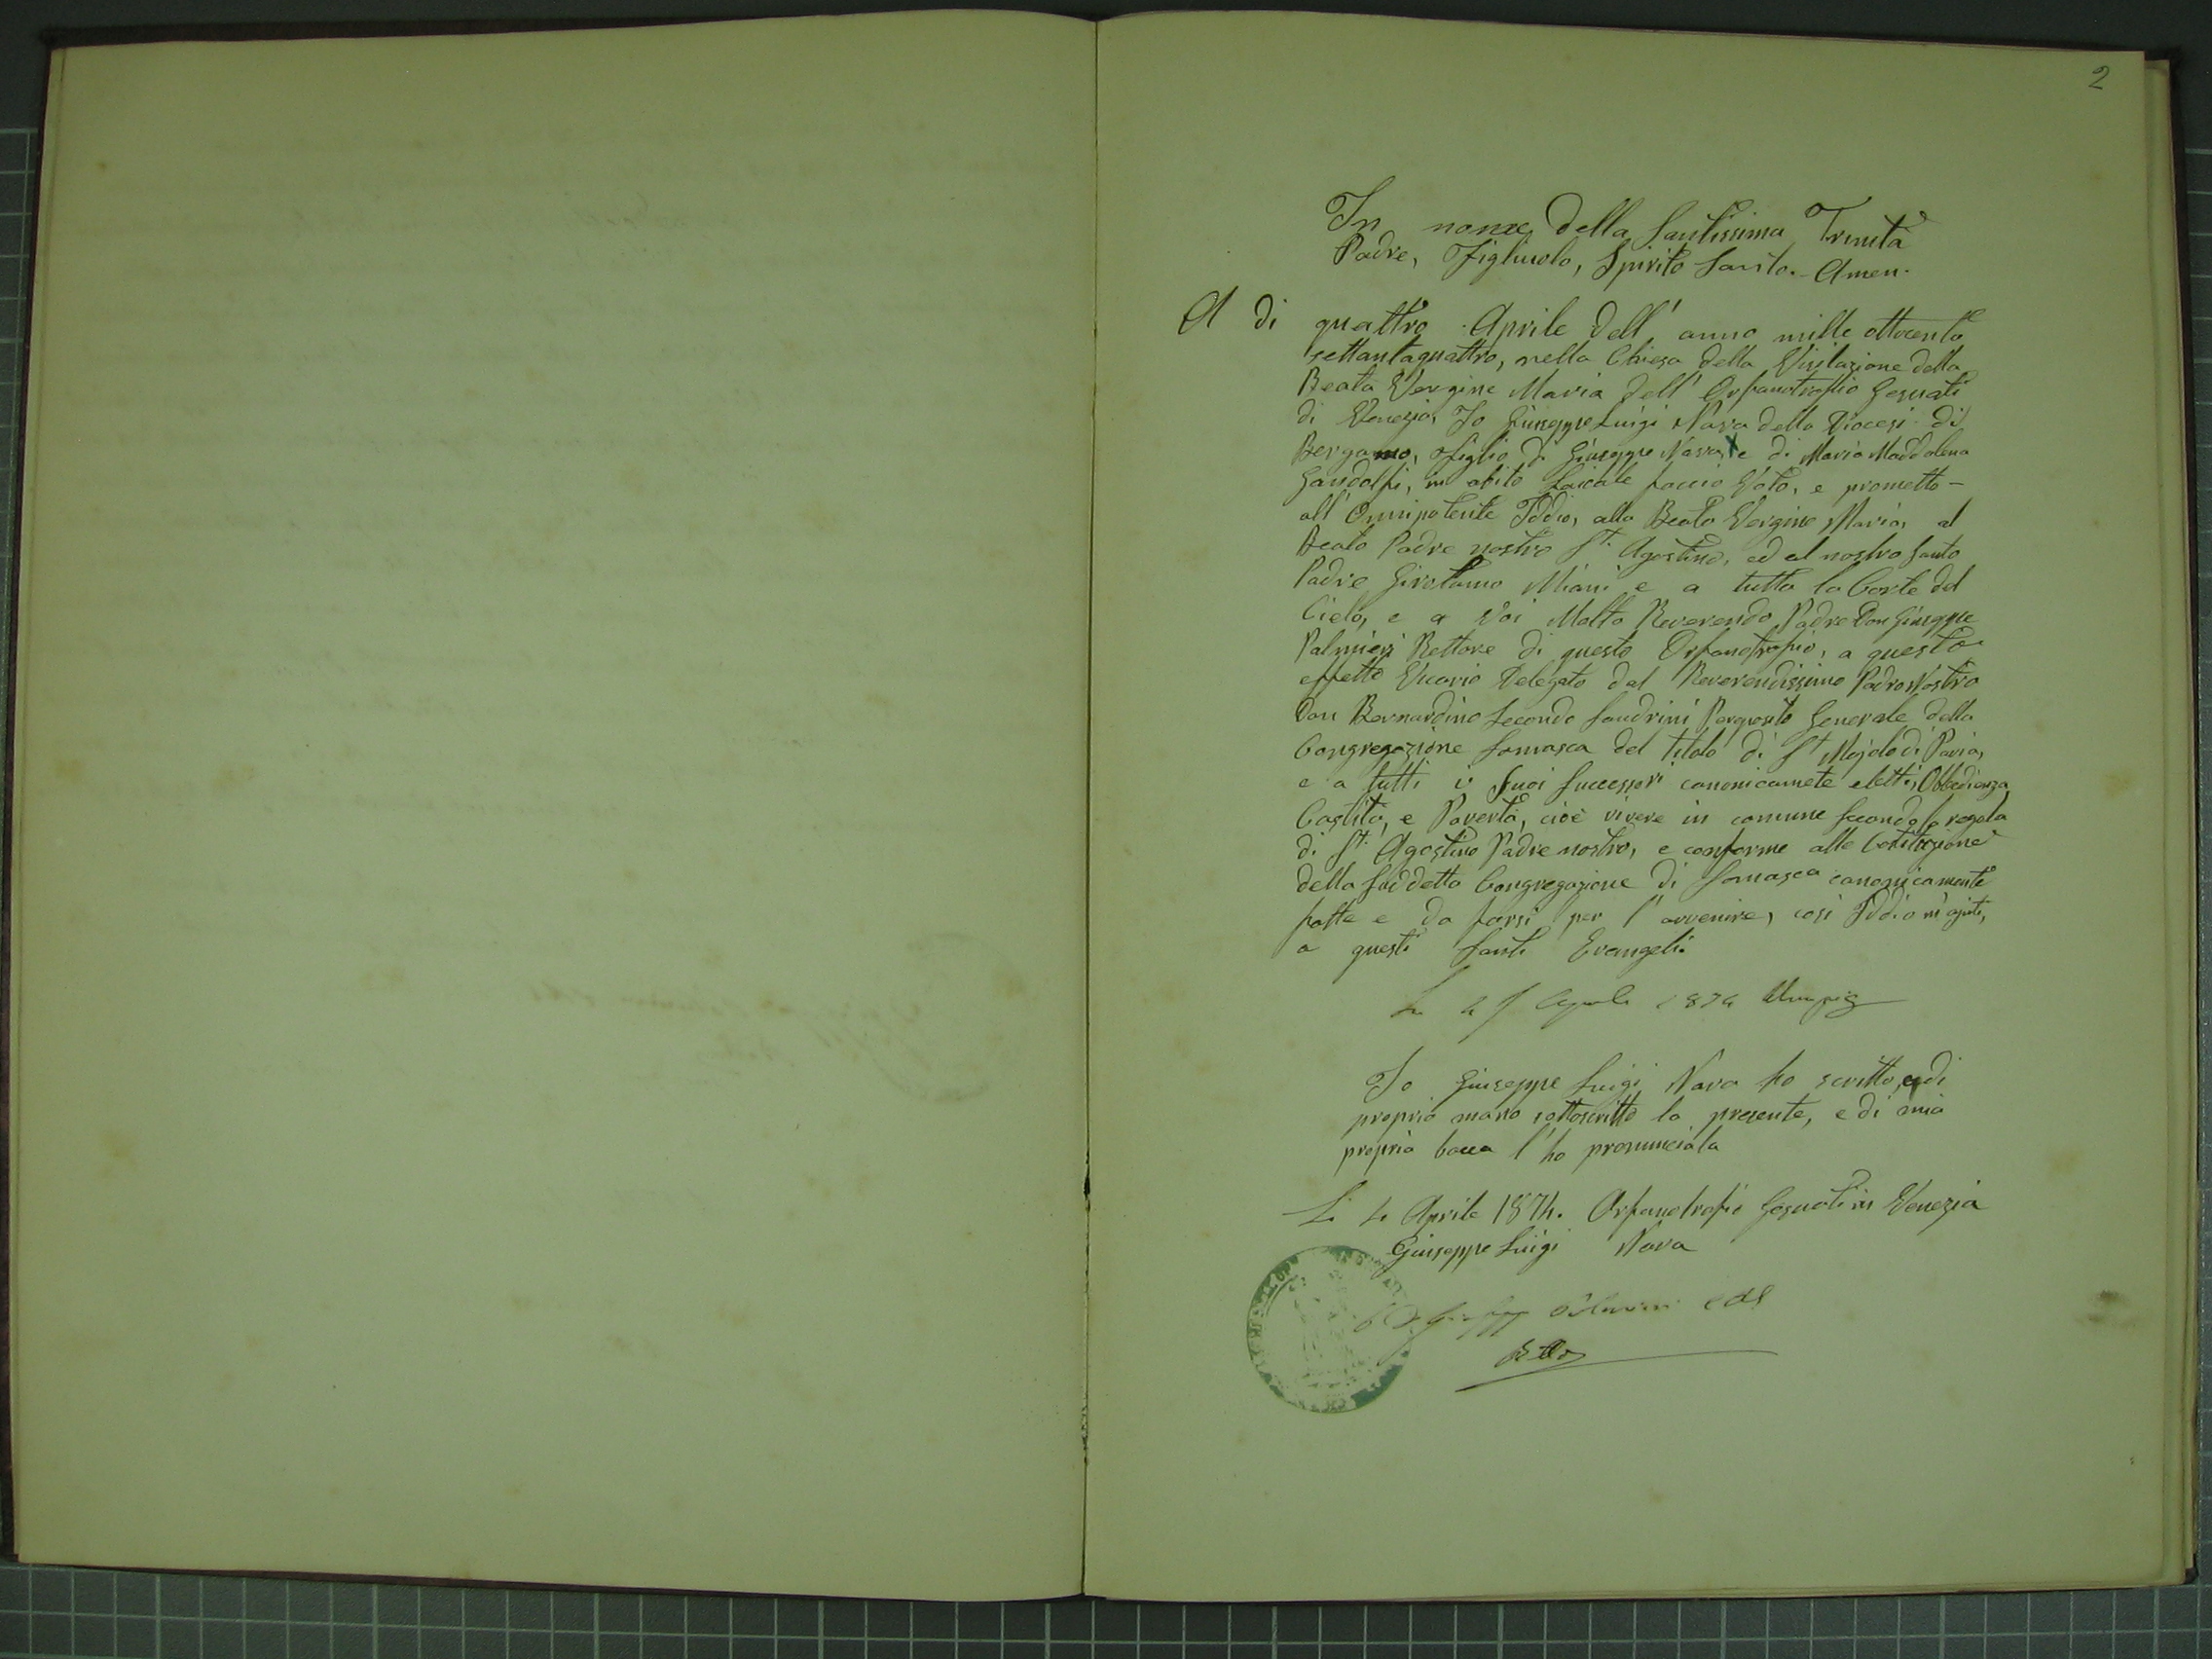 2
In nome della Santissima Trinità
Padre, Figliuolo, Spirito Santo. Amen.
A di quattro Aprile dell' anno mille ottocento
settantaquattro, nella Chiesa della Visitazione della
Beata Vergine Maria dell' Orfanotrofio Gesuati
di Venezia, Io Giuseppe Luigi Nava della Diocesi di
Bergamo, figlio di Giuseppe Nava, e di Maria Maddalena
Gandolfi, in abito Laicale faccio Voto, e prometto -
all' Onnipotente Iddio, alla Beata Vergine Maria, al
Beato Padre nostro St. Agostino, ed al nostro Santo
Padre Girolamo Miani e a tutta la Corte del
Cielo, e a Voi Molto Reverendo Padre Don Giuseppe
Palmieri Rettore di questo Orfanotrofio, a questo
effetto Vicario Delegato dal Reverendissimo Padre Nostro
Don Bernardino Secondo Sandrini Preposito Generale della
Congregazione Somasca del titolo di St Majolo di Pavia,
e a tutti i suoi Successori canonicamete eletti, Obbedienza,
Castità, e Povertà, cioè vivere in comune secondo la regola
di St. Agostino Padre nostro, e conforme alle
della suddetta Congregazione di Somasca canonicamente
fatte e da farsi per l' avvenire, così Iddio m' ajuti,
a questi Santi Evangeli.
Aprile 1874
Io Giuseppe Luigi Nava ho scritto, e di
propria mano sottoscritto la presente, e di mia
propria bocca l' ho pronunciata
Li 4 Aprile 1874. Orfanotrofio Gesuati in Venezia
Giuseppe Luigi Nava